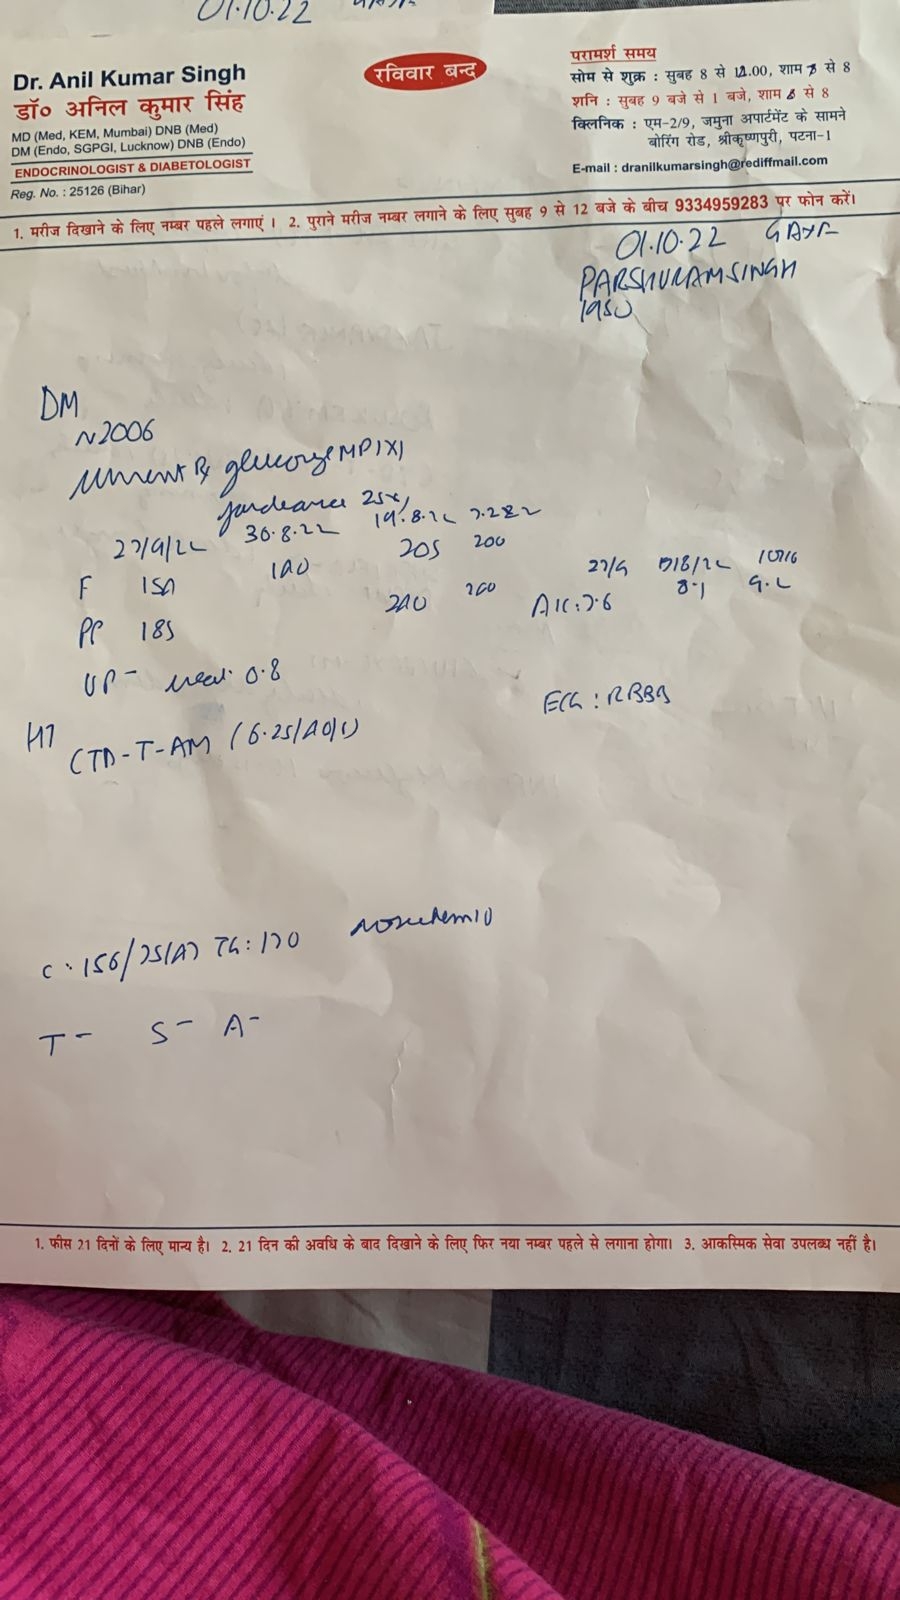 01.10.22
Dr. Anil Kumar Singh
डॉ० अनिल कुमार सिंह
MD (Med, KEM, Mumbai) DNB (Med)
DM (Endo, SGPGI, Lucknow) DNB (Endo)
ENDOCRINOLOGIST & DIABETOLOGIST
Reg. No. : 25126 (Bihar)
रविवार बन्द
परामर्श समय
सोम से शुक्र : सुबह 8 से 12.00, शाम से 8
शनि : सुबह 9 बजे से 1 बजे, शाम से 8
क्लिनिक : एम-2/9, जमुना अपार्टमेंट के सामने
बोरिंग रोड, श्रीकृष्णपुरी, पटना-1
E-mail : dranilkumarsingh@rediffmail.com
1. मरीज दिखाने के लिए नम्बर पहले लगाएं । 2. पुराने मरीज नम्बर लगाने के लिए सुबह 9 से 12 बजे के बीच 9334959283 पर फोन करें।
01.10.22 GAYA
PARSHURAM SINGH
1950
DM
~2006
current Rx MP1X1
Jardiance 25x1
30.8.22 19.8.22
F 205 200
27/9
PP 185 260 A1C: 7.6 8.1 9.2
UP- 0.8
ECG : RBBB
HT
CTD-T-AM (6.25/40/5)
C : 156/75(A) TG: 170
T- S- A-
1. फीस 21 दिनों के लिए मान्य है। 2. 21 दिन की अवधि के बाद दिखाने के लिए फिर नया नम्बर पहले से लगाना होगा। 3. आकस्मिक सेवा उपलब्ध नहीं है।